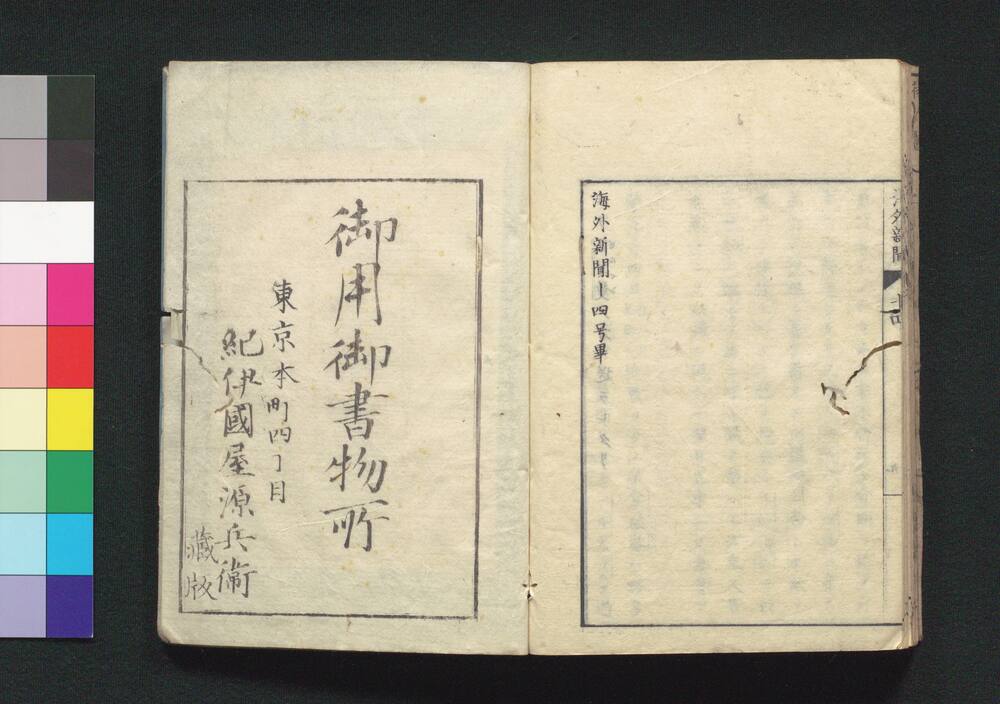 海外新聞
海外新聞十四号畢
御用御書物所
東京本町四丁目
紀伊國屋源兵衞
藏版